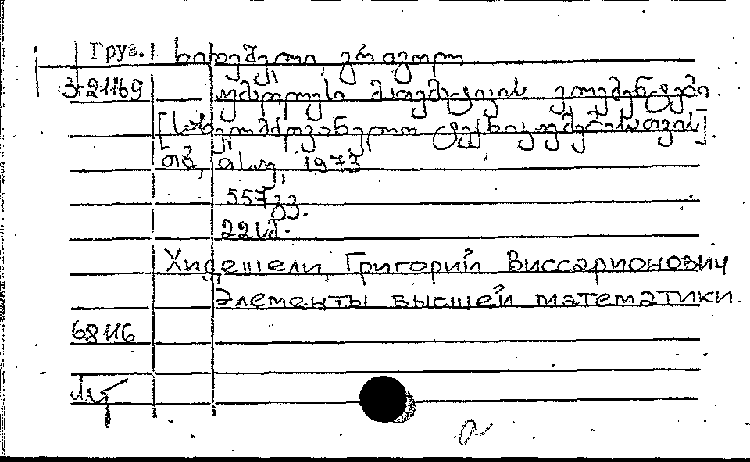 Груз. ხიდეშელი, გრიგოლ
3-21169
უმაღლესი მათემატიკის ელემენტები
[სახელმძღვანელო ტექნიკუმებისათვის].
თბ., 1973
557 გვ.
Хидешели, Григорий Виссарионович
Элементы высшей математики.
68116